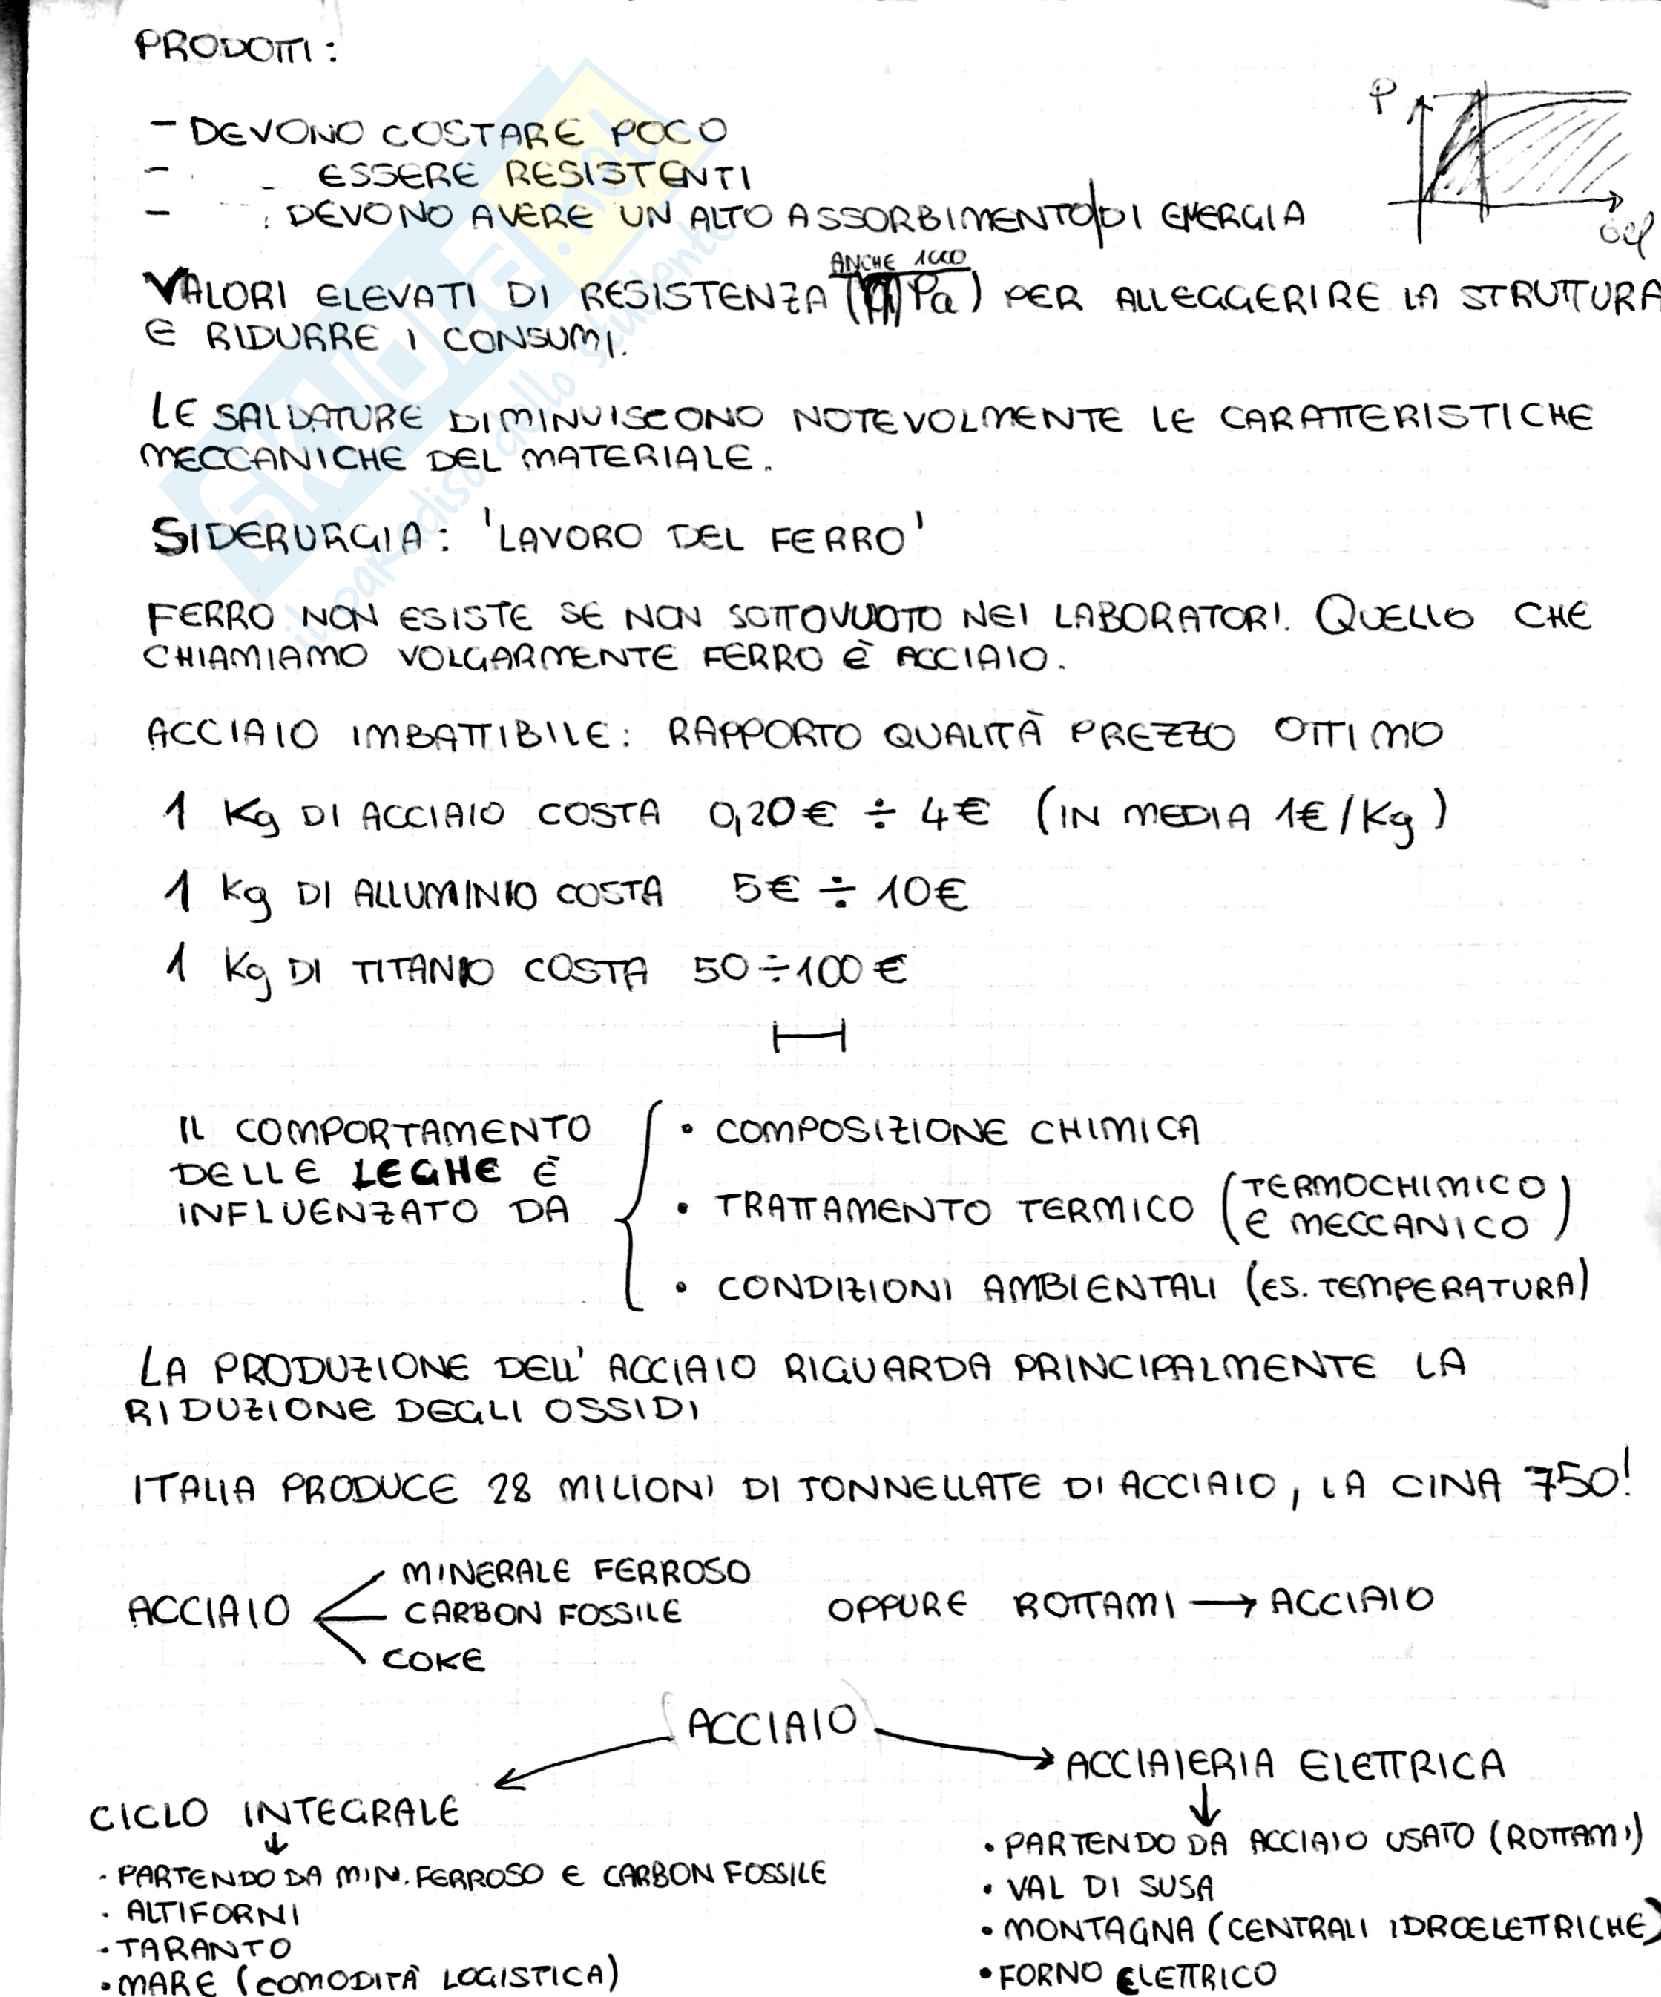 PRODOTTI:
- DEVONO COSTARE POCO
- ESSERE RESISTENTI
- DEVONO AVERE UN ALTO ASSORBIMENTO DI ENERGIA
P
ANCHE 1000
VALORI ELEVATI DI RESISTENZA (MPa) PER ALLEGGERIRE LA STRUTTURA
E RIDURRE I CONSUMI.
LE SALDATURE DIMINUISCONO NOTEVOLMENTE LE CARATTERISTICHE
MECCANICHE DEL MATERIALE.
SIDERURGIA: 'LAVORO DEL FERRO'
FERRO NON ESISTE SE NON SOTTOVUOTO NEI LABORATORI. QUELLO CHE
CHIAMIAMO VOLGARMENTE FERRO È ACCIAIO.
ACCIAIO IMBATTIBILE: RAPPORTO QUALITÀ PREZZO OTTIMO
1 Kg DI ACCIAIO COSTA 0,20€ ÷ 4€ (IN MEDIA 1€/Kg)
1 Kg DI ALLUMINIO COSTA 5€ ÷ 10€
1 Kg DI TITANIO COSTA 50÷100€
IL COMPORTAMENTO
DELLE LEGHE È
INFLUENZATO DA
• COMPOSIZIONE CHIMICA
• TRATTAMENTO TERMICO (TERMOCHIMICO
E MECCANICO)
• CONDIZIONI AMBIENTALI (ES. TEMPERATURA)
LA PRODUZIONE DELL' ACCIAIO RIGUARDA PRINCIPALMENTE LA
RIDUZIONE DEGLI OSSIDI
ITALIA PRODUCE 28 MILIONI DI TONNELLATE DI ACCIAIO, LA CINA 750!
ACCIAIO
MINERALE FERROSO
CARBON FOSSILE
COKE
OPPURE ROTTAMI → ACCIAIO
ACCIAIO
CICLO INTEGRALE
↓
• PARTENDO DA MIN. FERROSO E CARBON FOSSILE
• ALTIFORNI
• TARANTO
• MARE (COMODITÀ LOGISTICA)
ACCIAIERIA ELETTRICA
↓
• PARTENDO DA ACCIAIO USATO (ROTTAMI)
• VAL DI SUSA
• MONTAGNA (CENTRALI IDROELETTRICHE)
• FORNO ELETTRICO
SKUOLA.net
il paradiso dello studente